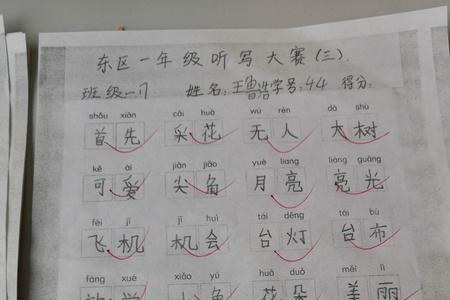 东区一年级听写大赛(三).
班级一17 姓名:王鲁浩学号:44 得分:
shǒu xiān cǎi huā wú rén dà shù
首先 采花 无人 大树
kě ài jiān jiǎo yuè liang liàng guāng
可爱 尖角 月亮 亮光
fēi jī jī huì tái dēng tái bù
飞机 机会 台灯 台布
fàng xué xiǎo yú huā duǒ měi lì
放学 小鱼 花朵 美丽